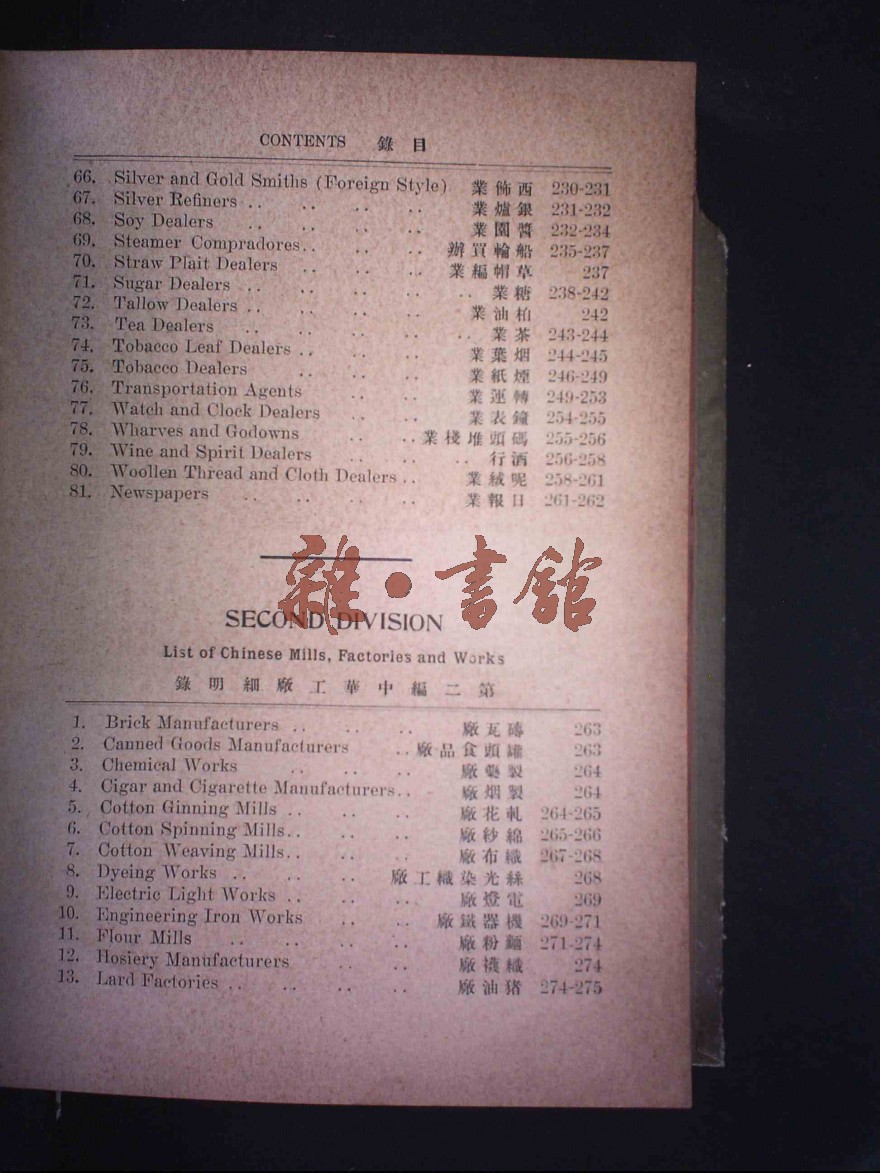 CONTENTS 錄目
66. Silver and Gold Smiths (Foreign Style) 業飾西 230-231
67. Silver Refiners .. .. .. .. 業爐銀 231-232
68. Soy Dealers .. .. .. .. 業園醬 232-234
69. Steamer Compradores.. .. .. 辦買輪船 235-237
70. Straw Plait Dealers .. .. .. 業編帽草 237
71. Sugar Dealers .. .. .. .. .. 業糖 238-242
72. Tallow Dealers .. .. .. .. 業油柏 242
73. Tea Dealers .. .. .. .. .. 業茶 243-244
74. Tobacco Leaf Dealers .. .. .. 業葉烟 244-245
75. Tobacco Dealers .. .. .. 業紙煙 246-249
76. Transportation Agents .. .. 業運轉 249-253
77. Watch and Clock Dealers .. .. 業表鐘 254-255
78. Wharves and Godowns .. .. 業棧堆頭碼 255-256
79. Wine and Spirit Dealers .. .. .. 行酒 256-258
80. Woollen Thread and Cloth Dealers .. 業絨呢 258-261
81. Newspapers .. .. .. .. 業報日 261-262
雜·書館
SECOND DIVISION
List of Chinese Mills, Factories and Works
錄明細廠工華中編二第
1. Brick Manufacturers .. .. .. 廠瓦磚 263
2. Canned Goods Manufacturers .. 廠品食頭罐 263
3. Chemical Works .. .. .. 廠藥製 264
4. Cigar and Cigarette Manufacturers.. 廠烟製 264
5. Cotton Ginning Mills .. .. .. 廠花軋 264-265
6. Cotton Spinning Mills.. .. .. 廠紗綿 265-266
7. Cotton Weaving Mills.. .. .. 廠布織 267-268
8. Dyeing Works .. .. .. 廠工織染光絲 268
9. Electric Light Works .. .. .. 廠燈電 269
10. Engineering Iron Works .. .. 廠鐵器機 269-271
11. Flour Mills .. .. .. .. 廠粉麵 271-274
12. Hosiery Manufacturers .. .. 廠襪織 274
13. Lard Factories .. .. .. .. 廠油猪 274-275